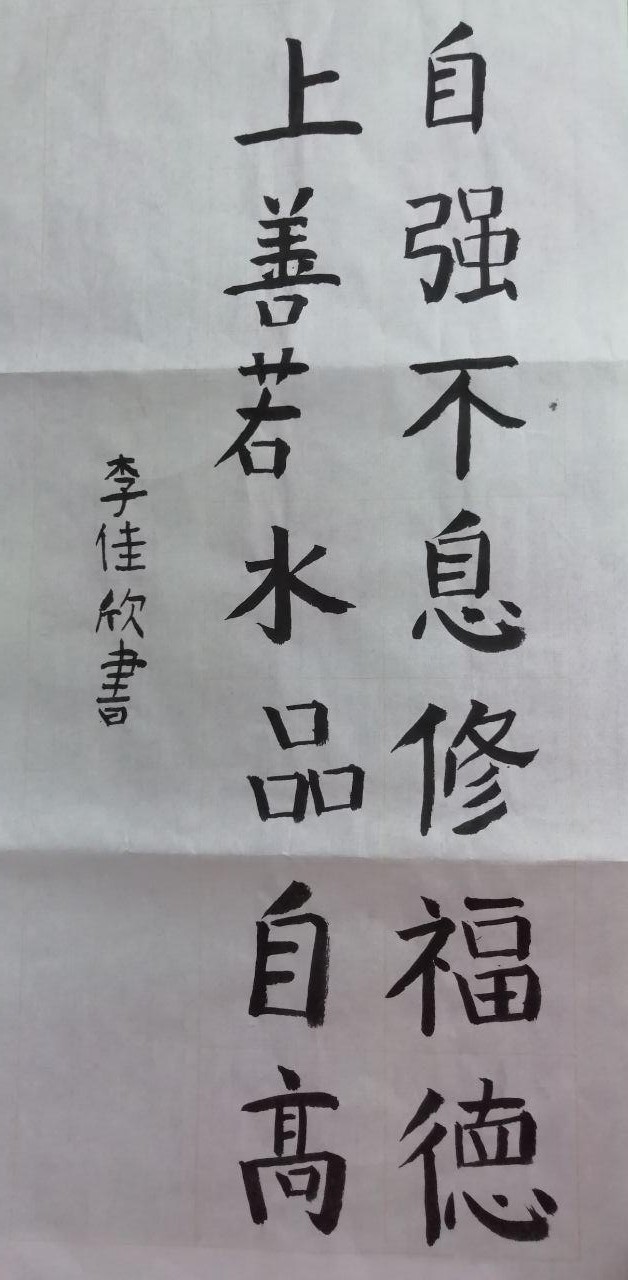 自强不息修福德
上善若水品自高
李佳欣書